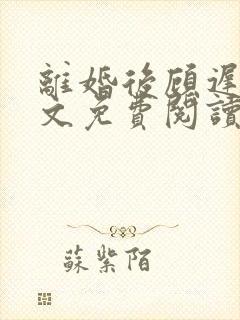 離婚後顧遲
文免費閱讀
蘇紫陌